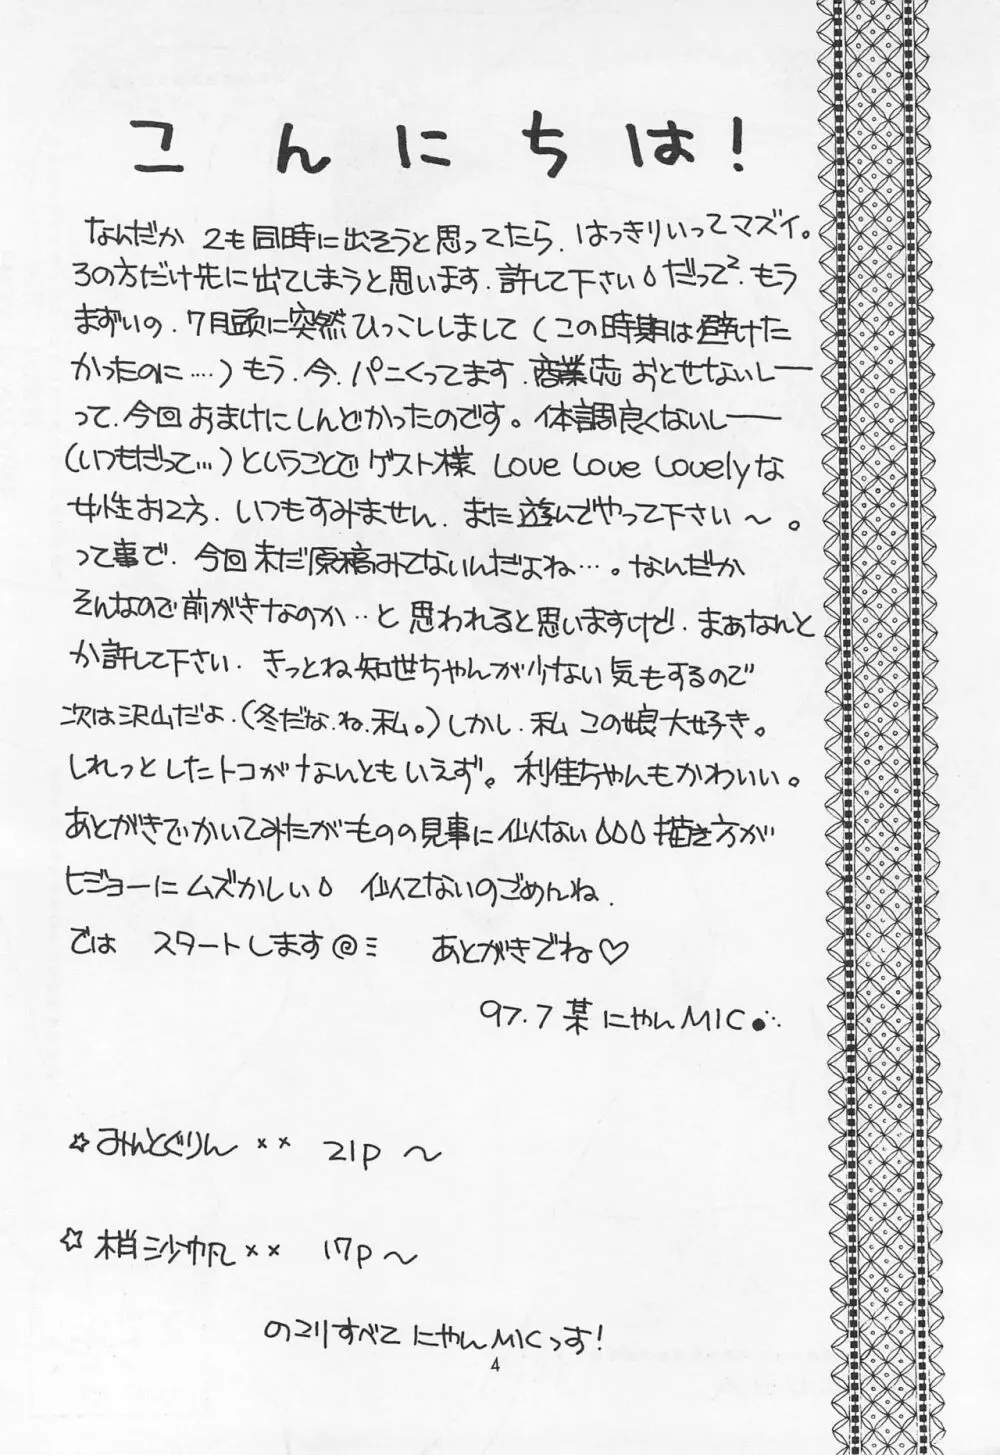 こんにちは!
なんだか 2も同時に出そうと思ってたら、はっきりいってマズイ。
3の方だけ先に出てしまうと思います、許して下さい だって²、もう
まずいの、7月頭に突然ひっこししまして(この時期は避けた
かったのに……)もう、今、パニくってます、商業誌 おとせないしー
って、今回おまけにしんどかったのです。体調良くないしー
(いつもだって…)ということでゲスト様 Love Love Lovelyな
女性お2方、いつもすみません、また遊んでやって下さい〜。
って事で、今回未だ原稿みてないんだよね…。なんだか
そんなので前がきなのか‥と思われると思いますけど、まぁなんと
か許して下さい、きっとね知世ちゃんが少ない気もするので
次は沢山だよ、(冬だな、ね、私。)しかし、私 この娘大好き。
しれっとしたトコがなんともいえず。利佳ちゃんもかわいい。
あとがきでかいてみたがものの見事に似ない 描き方が
ヒジョーにムズかしい 似てないのごめんね、
では スタートします@ミ あとがきでね♡
97.7 某 にゃんMIC
☆みんとぐりん ×× 21p 〜
☆梢 沙帆 ×× 17p 〜
のこりすべて にゃんMICっす!
4